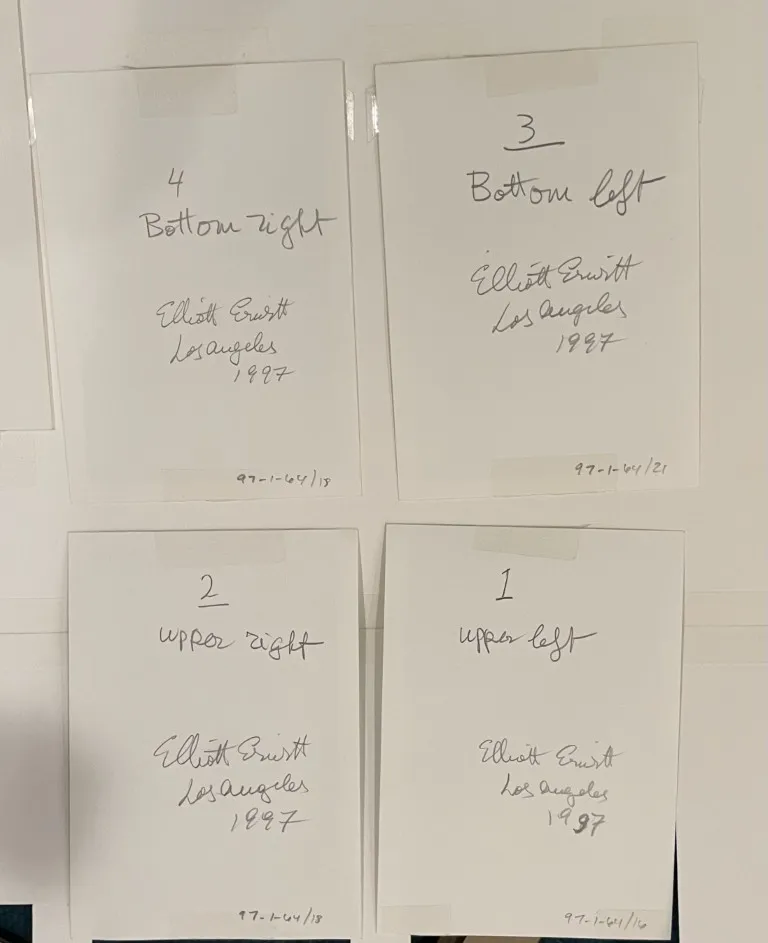 4
Bottom right
Elliott Erwitt
Los Angeles
1997
97-1-64/18
3
Bottom left
Elliott Erwitt
Los Angeles
1997
97-1-64/21
2
upper right
Elliott Erwitt
Los Angeles
1997
97-1-64/18
1
upper left
Elliott Erwitt
Los Angeles
1997
97-1-64/16